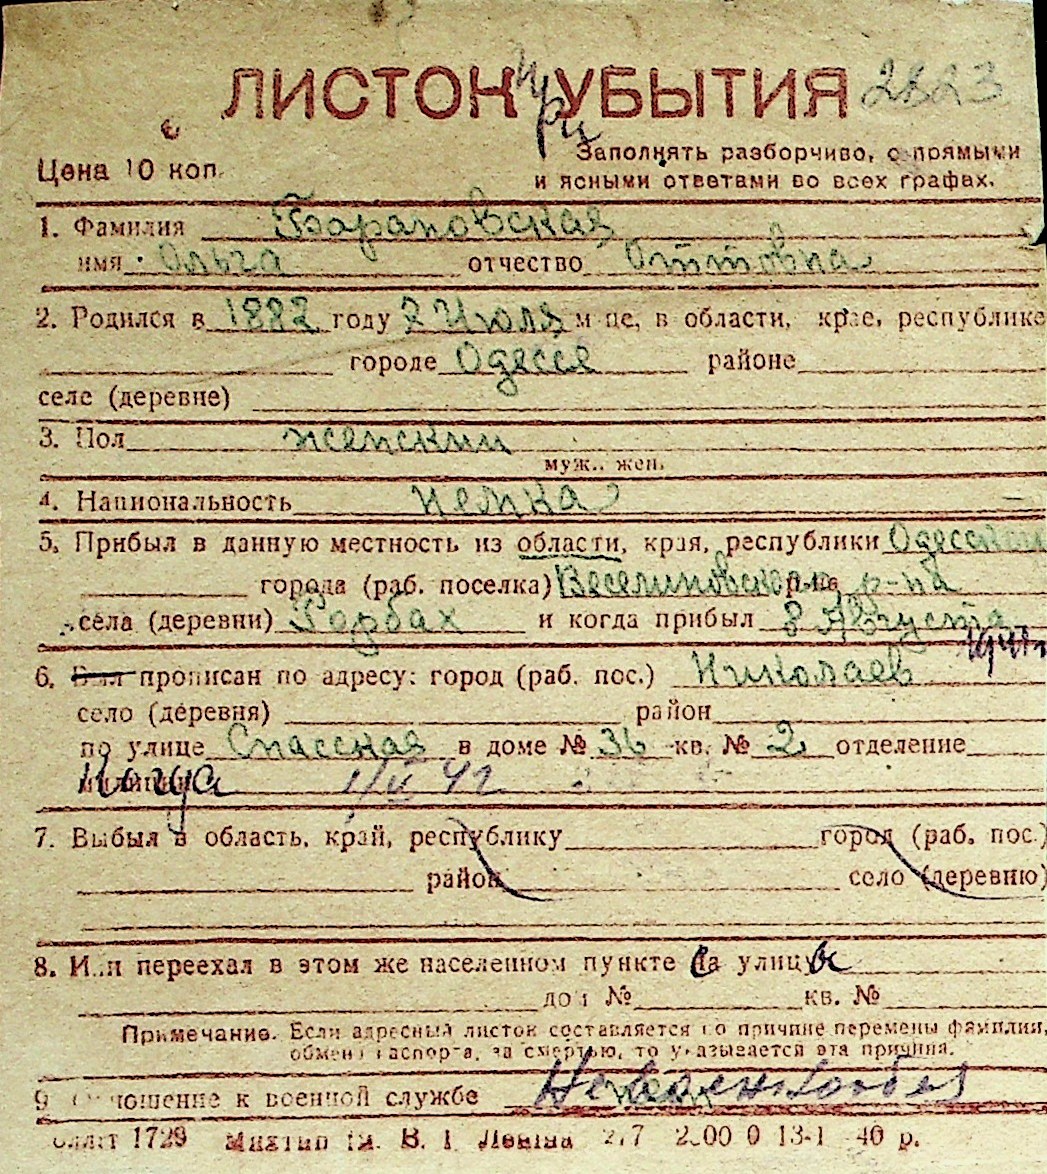 ЛИСТОК УБЫТИЯ 2823
Цена 10 коп.
Заполнять разборчиво, с прямыми
и ясными ответами во всех графах.
1. Фамилия Барановская
имя Ольга отчество Оттовна
2. Родился в 1882 году 2 Июля м-це, в области, крае, республике
городе Одессе районе
селе (деревне)
3. Пол женский
муж., жен.
4. Национальность немка
5. Прибыл в данную местность из области, края, республики Одесской
города (раб. поселка) Веселиновского р-на
села (деревни) и когда прибыл 8 Августа
1941 г
6. Был прописан по адресу: город (раб. пос.) Николаев
село (деревня) район
по улице Спасская в доме № 36 кв. № 2 отделение
милиции
7. Выбыл в область, край, республику город (раб. пос.)
район село (деревню)
8. Или переехал в этом же населенном пункте на улицу
дом № кв. №
Примечание. Если адресный листок составляется по причине перемены фамилии,
обмена паспорта, за смертью, то указывается эта причина.
9. Отношение к военной службе
1729 В. И. Ленина 13-1 40 р.